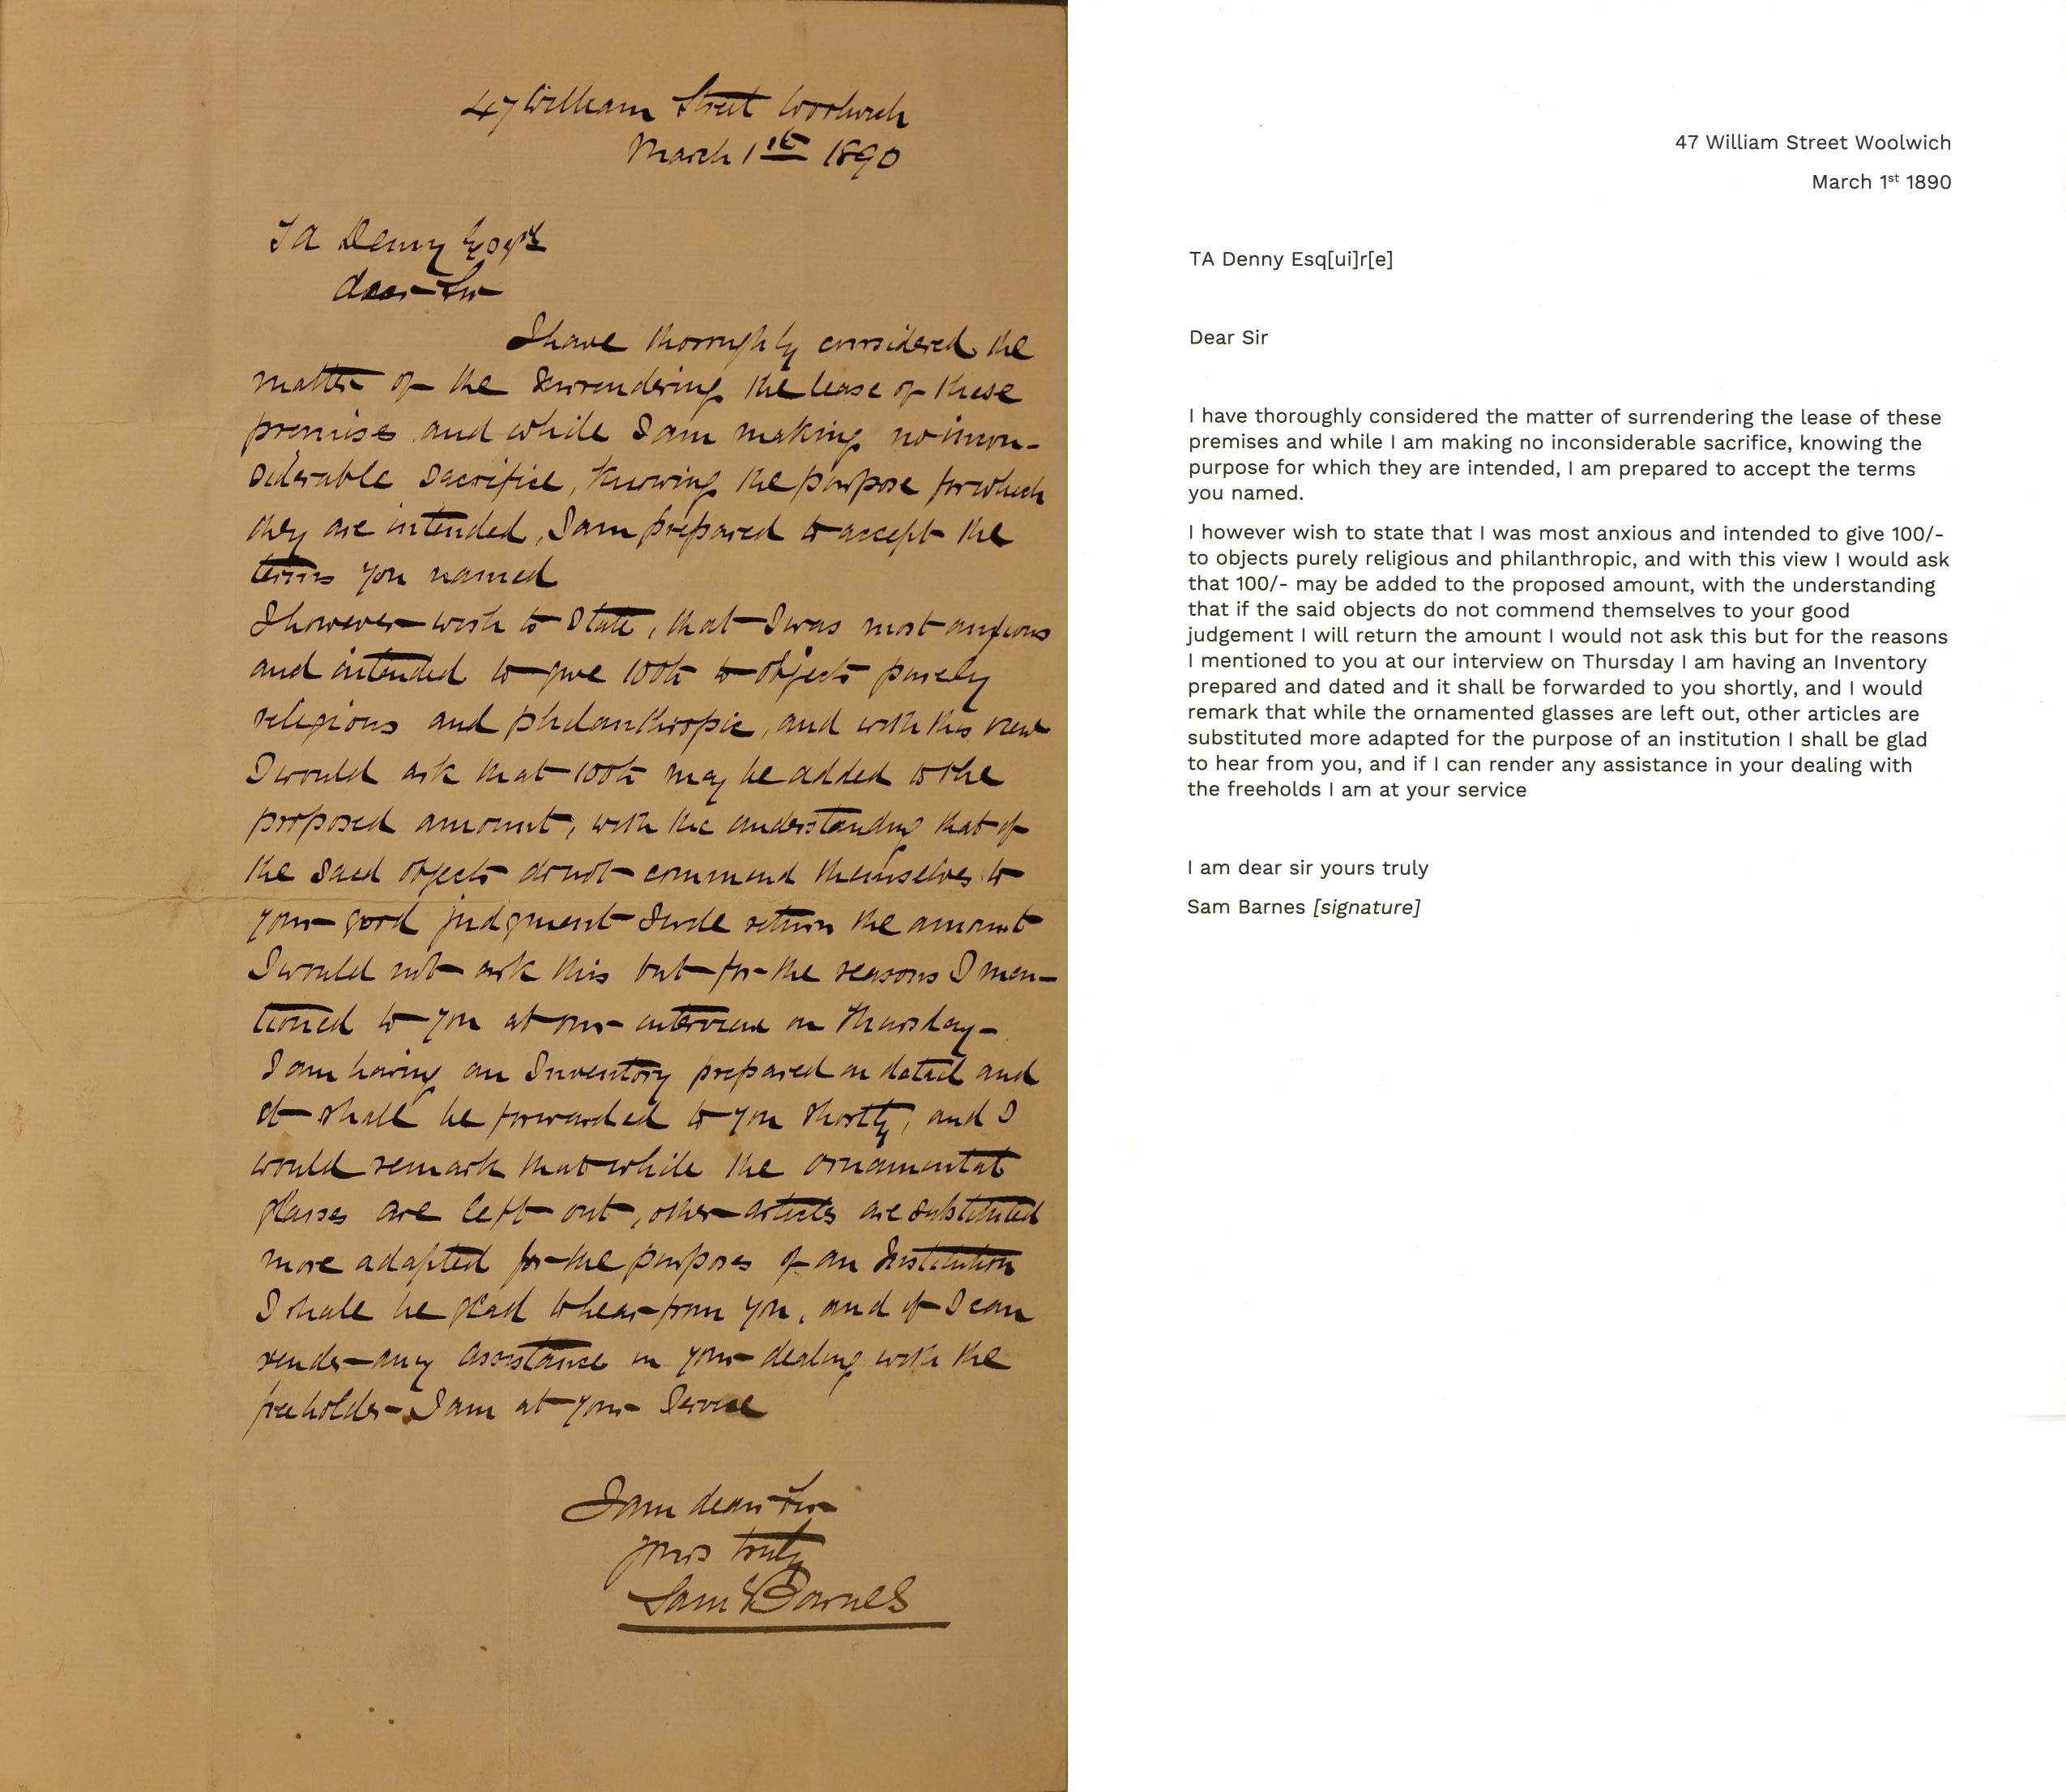 47 William Street Woolwich
March 1st 1890
TA Denny Esqr
dear Sir
I have thoroughly considered the
matter of the Surrendering the lease of these
premises and while I am making no incon-
siderable Sacrifice, knowing the purpose for which
they are intended, I am prepared to accept the
terms you named
I however wish to State, that I was most anxious
and intended to give to objects purely
religious and philanthropic, and with this view
I would ask that may be added to the
proposed amount, with the understanding that if
the Said objects do not commend themselves to
your good judgment I will return the amount
I would not ask this but for the reasons I men-
tioned to you at our interview on Thursday-
I am having an Inventory prepared in detail and
it shall be forwarded to you shortly, and I
would remark that while the ornamental
glasses are left out, other articles are substituted
more adapted for the purposes of an Institution
I shall be glad to hear from you, and if I can
render any assistance in your dealing with the
freeholder I am at your Service
I am dear Sir
yours truly
Sam Barnes
47 William Street Woolwich
March 1st 1890
TA Denny Esq[ui]r[e]
Dear Sir
I have thoroughly considered the matter of surrendering the lease of these
premises and while I am making no inconsiderable sacrifice, knowing the
purpose for which they are intended, I am prepared to accept the terms
you named.
I however wish to state that I was most anxious and intended to give 100/-
to objects purely religious and philanthropic, and with this view I would ask
that 100/- may be added to the proposed amount, with the understanding
that if the said objects do not commend themselves to your good
judgement I will return the amount I would not ask this but for the reasons
I mentioned to you at our interview on Thursday I am having an Inventory
prepared and dated and it shall be forwarded to you shortly, and I would
remark that while the ornamented glasses are left out, other articles are
substituted more adapted for the purpose of an institution I shall be glad
to hear from you, and if I can render any assistance in your dealing with
the freeholds I am at your service
I am dear sir yours truly
Sam Barnes [signature]